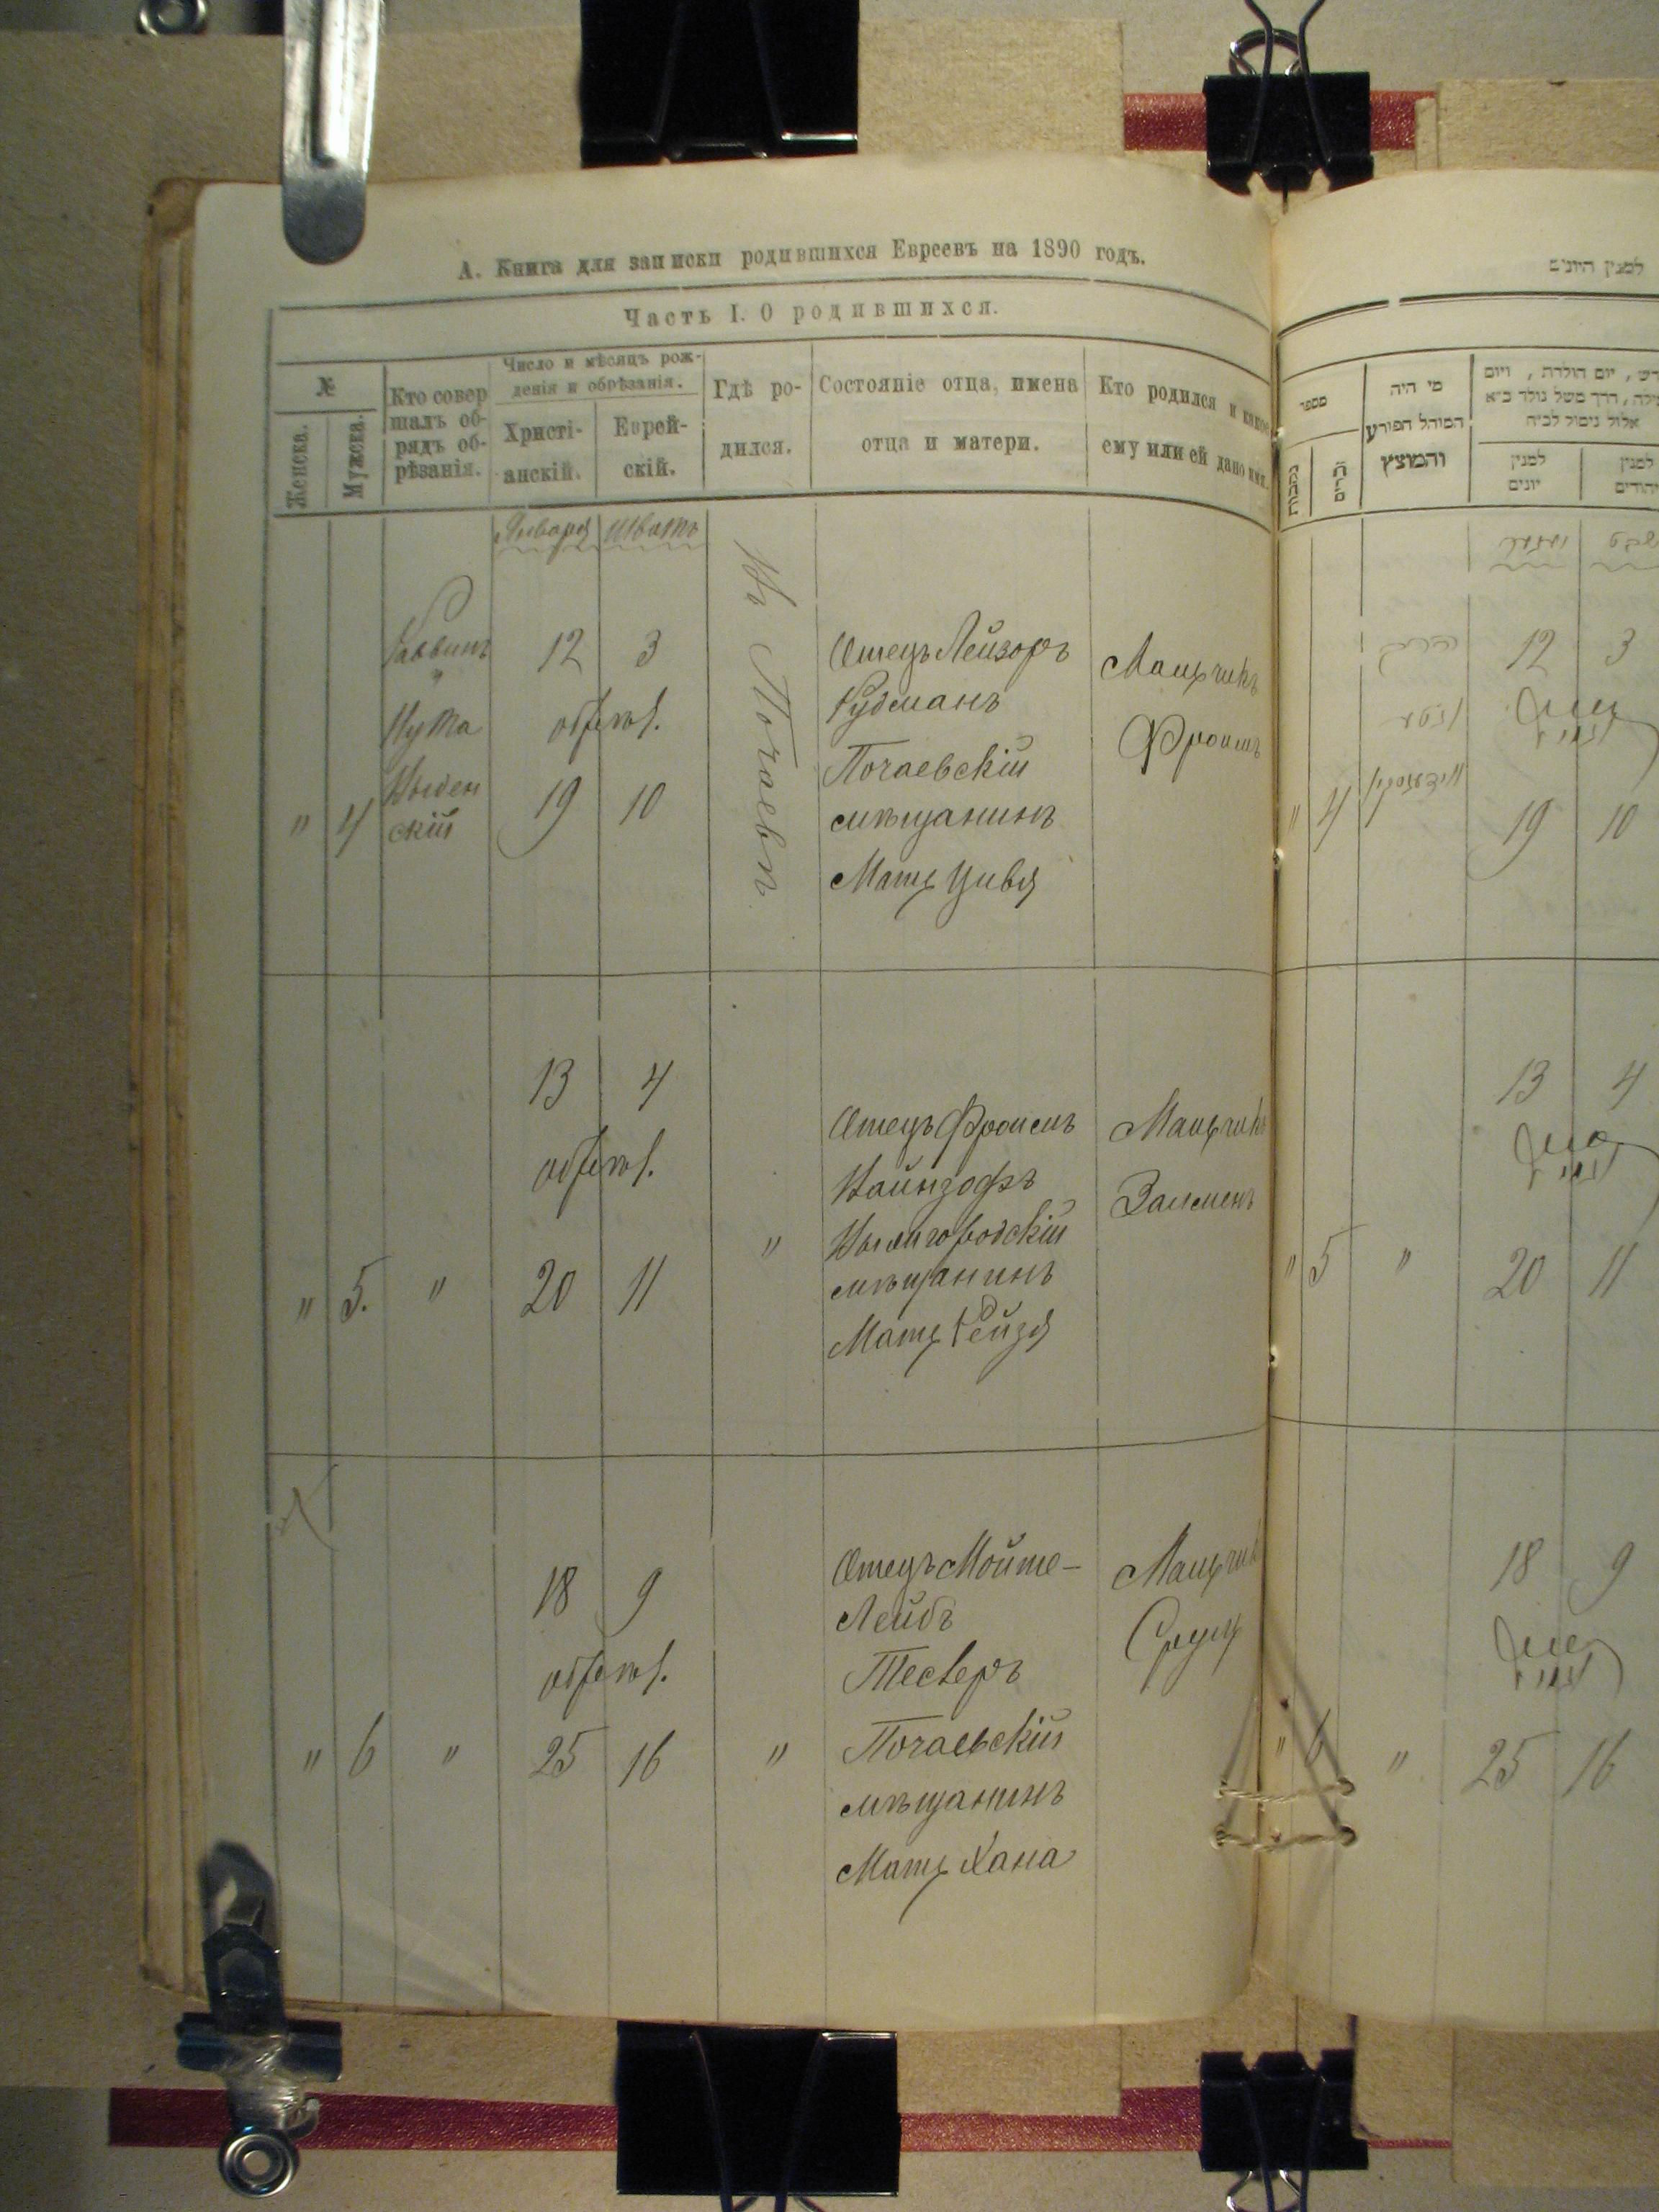 А. Книга для записки родившихся Евреевъ на 1890 годъ.
Часть I. О родившихся.
№
Женска.
Мужска.
Кто совер
шалъ об-
рядъ об-
рѣзанія.
Число и мѣсяцъ рож-
денія и обрѣзанія.
Христі-
анскій.
Еврей-
скій.
Гдѣ ро-
дился.
Состояніе отца, имена
отца и матери.
Кто родился и какое
ему или ей дано имя.
Января Шватъ
Раввинъ
Нута
скій
" 4
12 3
обрѣз.
19 10
Въ Почаевѣ
Отецъ Лейзоръ
Гудманъ
Почаевскій
мѣщанинъ
Мать Цивя
Мальчикъ
Фроимъ
" 5. "
13 4
обрѣз.
20 11
"
Отецъ Фроимъ
Вайнзофъ
мѣщанинъ
Мать Рейзя
Мальчикъ
Залменъ
" 6 "
18 9
обрѣз.
25 16
"
Отецъ Мойше-
Лейбъ
Тесверъ
Почаевскій
мѣщанинъ
Мать Хана
Мальчикъ
Сруль
למנין היונים
מספר
נקבות
זכרים
מי היה
המוהל הפורע
והמוצץ
יום הולדת , ויום
אלול נימול לכ"ה
למנין
יונים
למנין
12 3
" 4
19 10
13 4
" 5 "
20 11
18 9
" 6 "
25 16